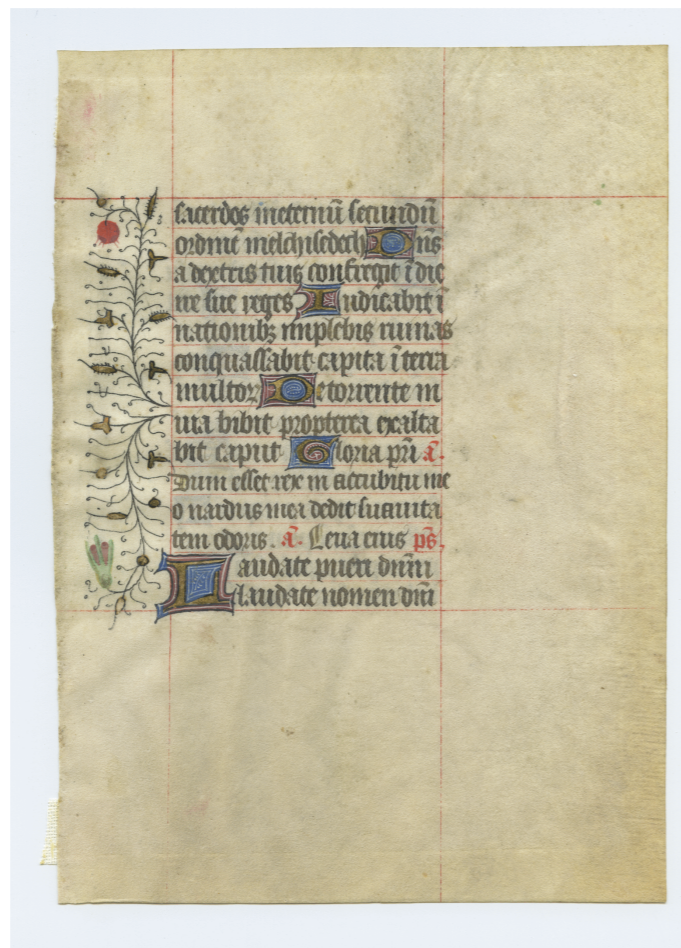 sacerdos ineternū secundū
ordinē melchisedech Dn̄s
a dextris tuis confregit ī die
ire sue reges Iudicabit ī
nationibꝫ implebis ruinas
conquassabit capita ī terra
multoꝝ De torrente in
uia bibit propterea exalta
bit caput Gloria pr̄i a̅.
Dum esset rex in accubitu me
o nardus mea dedit suauita
tem odoris. a̅. Leua eius p̄s,
Laudate pueri dn̄m
laudate nomen dn̄i